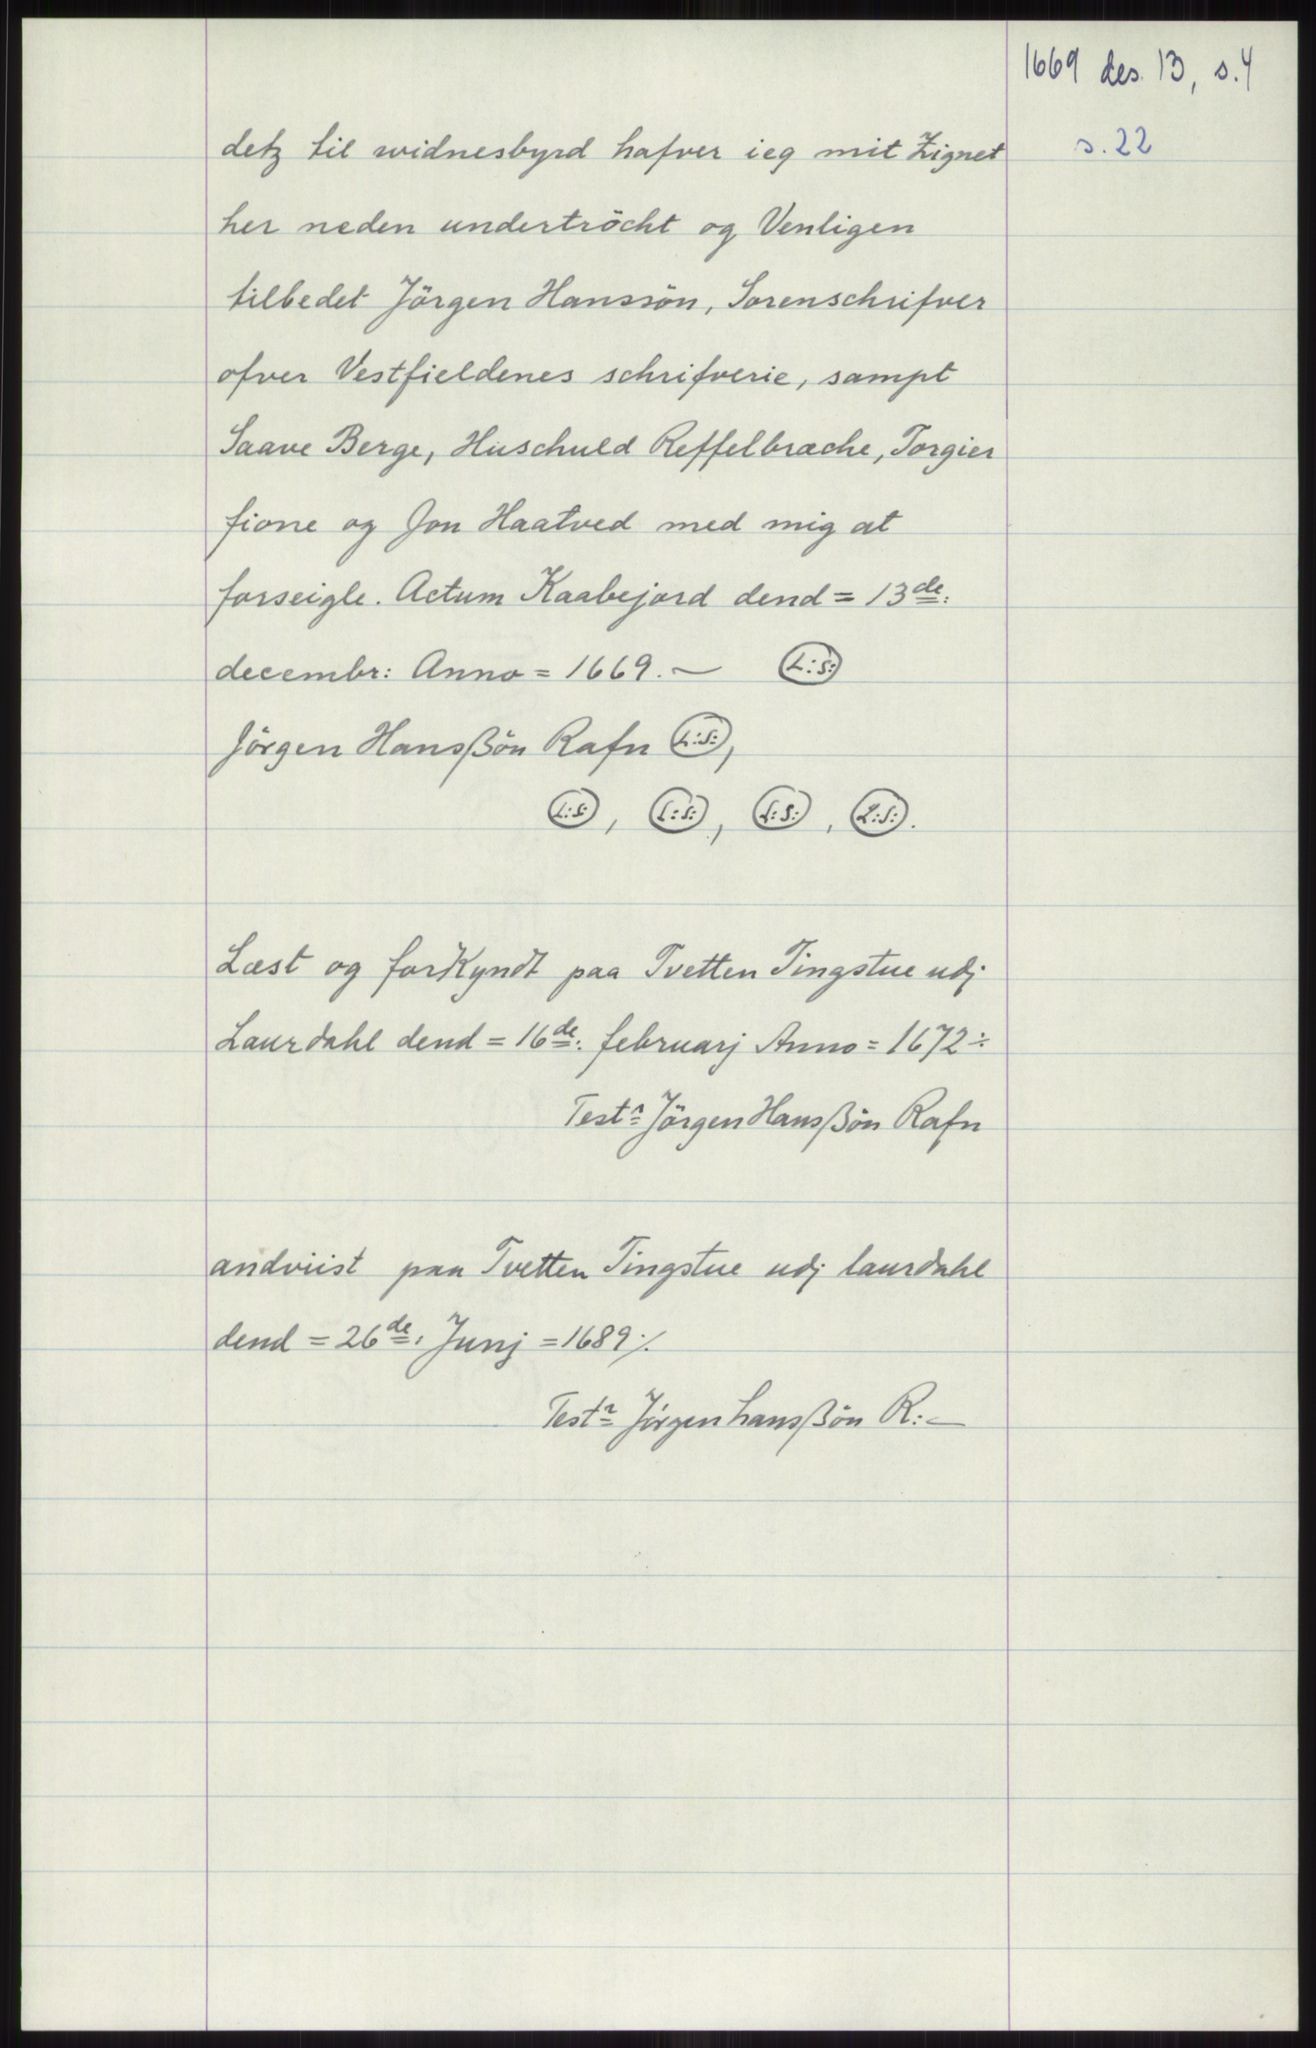 1669 des. 13, s. 4
s. 22
detz til widnesbyrd hafver ieg mit Zignet
her neden undertröcht og Venligen
tilbedet Jörgen Hanssön, Sorenschrifver
ofver Vestfieldenes schrifverie, sampt
Saave Berge, Huschuld Reffelbræche, Torgier
fione og Jon Haatved med mig at
forseigle. Actum Kaabejord dend = 13de:
decembr: Anno = 1669. — L:S:
Jörgen Hansßön Rafn L:S:,
L:S:, L:S:, L:S:, L:S:.
Læst og forKyndt paa Tvetten Tingstue udj
Laurdahl dend = 16de: februarj Anno = 1672 ÷
Testr Jörgen Hansßön Rafn
andviist paa Tvetten Tingstue udj laurdahl
dend = 26de: Junj = 1689 ⁒
Testr Jörgen hansßön R: —